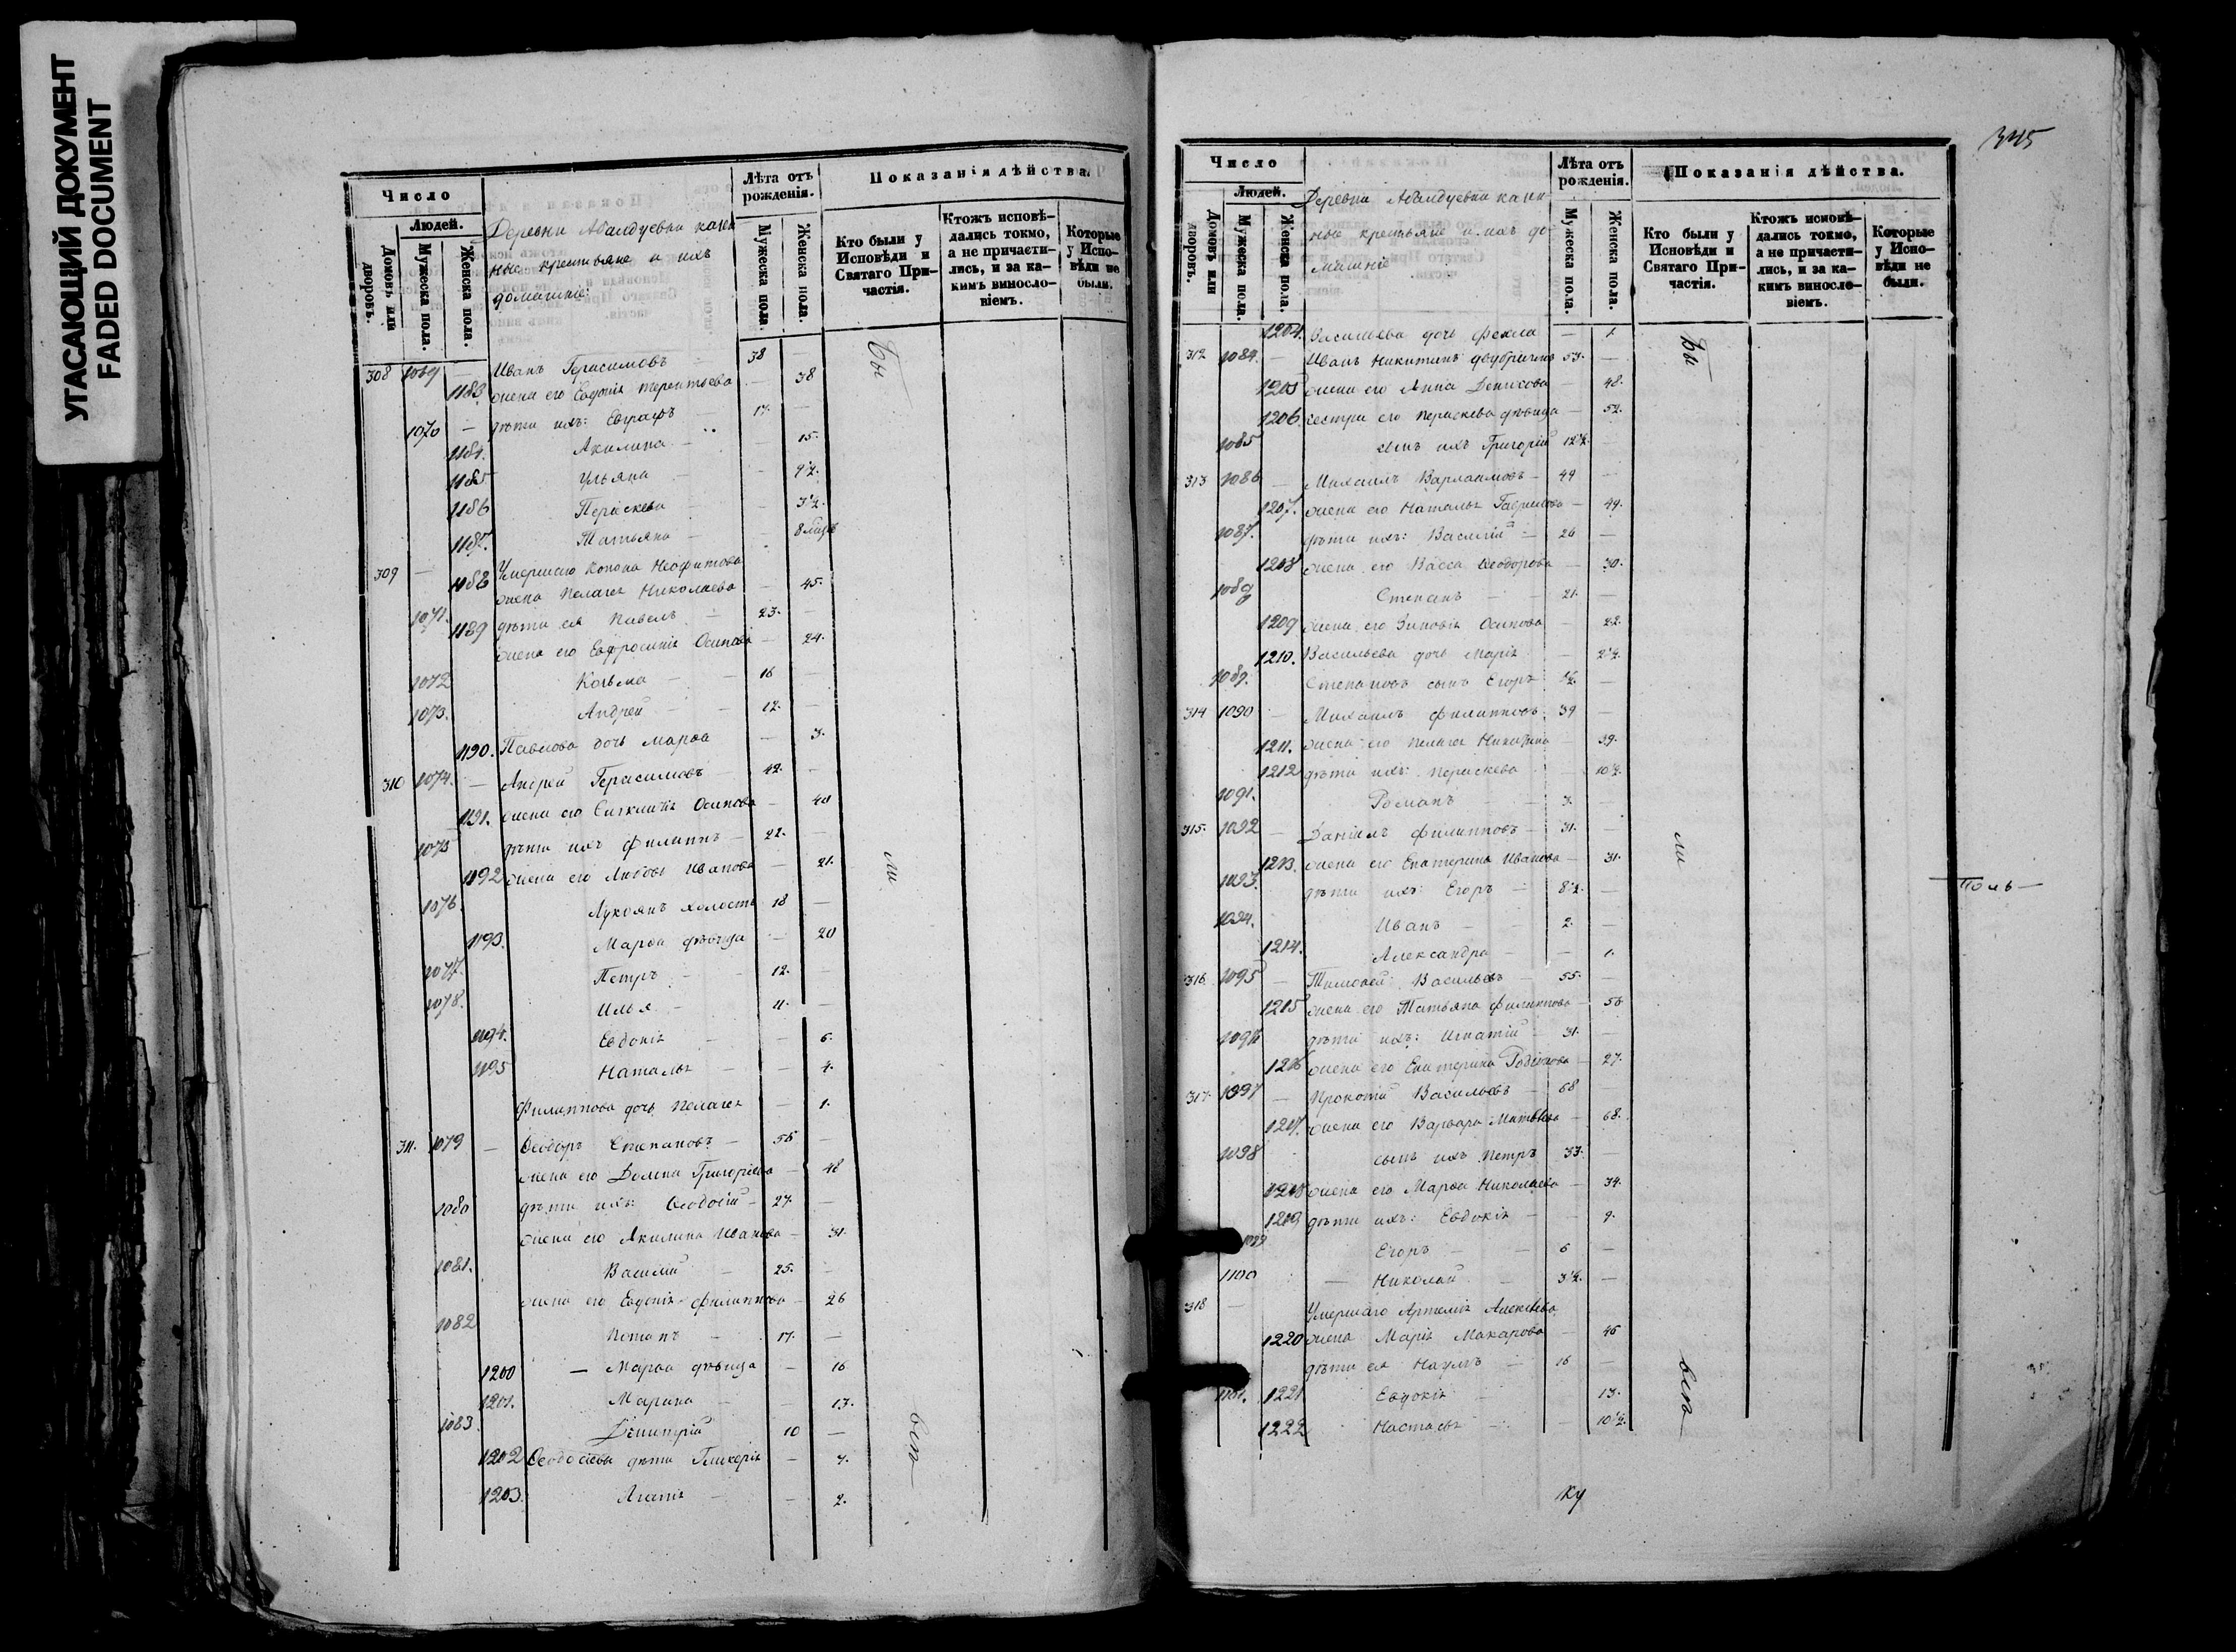 УГАСАЮЩИЙ ДОКУМЕНТ
FADED DOCUMENT
Число
Людей.
Домовъ или дворовъ.
Мужеска пола.
Женска пола.
Деревни Абалдуевки казен
ные крестьяне и ихъ
домашніе:
Лѣта отъ рожденія.
Мужеска пола.
Женска пола.
Показанія дѣйства.
Кто были у Исповѣди и Святаго Причастія.
Ктожъ исповѣдались токмо, а не причастились, и за какимъ винословіемъ.
Которые у Исповѣди не были.
308 1069 — Иванъ Герасимовъ 38 —
1183 жена его Евдокія Терентьева — 38
1070 — дѣти ихъ: Евграфъ — 17. —
1184. Акилина — — 15.
1185 Ульяна — — 9½.
1186 Параскева — — 3½.
1187. Татьяна — — 8 мцвъ
309 — Умершаго Конона Неофитова
1188 жена Пелагея Николаева — 45.
1071. дѣти ея Павелъ — 23. —
1189 жена его Евфросинія Осипова — 24.
1072 Козьма — 16 —
1073. Андрей — 12. —
1190. Павлова дочь Марѳа — 3.
310 1074. — Андрей Герасимовъ 42. —
1191. жена его Синклитія Осипова — 40
1075 дѣти ихъ Филиппъ — 22. —
1192 жена его Любовь Иванова — 21.
1076. Лукоянъ холостъ 18 —
1193. Марѳа дѣвица — 20
1077. Петръ — 12. —
1078. Илья — 11. —
1194. Евдокія — — 6.
1195 Наталья — — 4.
Филиппова дочь Пелагея — 1.
311. 1079 — Ѳеодоръ Степановъ — 55 —
жена его Домна Григорьева — 48
1080 дѣти ихъ: Ѳеодосій — 27. —
жена его Акилина Иванова — 31.
1081. Василій — 25. —
жена его Евдокія Филиппова — 26
1082 Потапъ — 17. —
1200 — Марѳа дѣвица — 16
1201. Марина — — 13.
1083 Димитрій 10 —
1202 Ѳеодосіевы дѣти Гликерія — 4.
1203. Агапія — — 2.
Бы
ли
всѣ
345
Число
Людей.
Домовъ или дворовъ.
Мужеска пола.
Женска пола.
Деревни Абалдуевки казен
ные крестьяне и ихъ до
машніе
Лѣта отъ рожденія.
Мужеска пола.
Женска пола.
Показанія дѣйства.
Кто были у Исповѣди и Святаго Причастія.
Ктожъ исповѣдались токмо, а не причастились, и за какимъ винословіемъ.
Которые у Исповѣди не были.
1204. Васильева дочь Фекла — 1.
312 1084. — Иванъ Никитинъ 53. —
1205 жена его Анна Денисова — 48.
1206. сестра его Параскева дѣвица — 52.
1085 сынъ ихъ Григорій 12½. —
313 1086 — Михаилъ Варлаамовъ — 44 —
1207. жена его Наталья Гаврилова — 44.
1087. дѣти ихъ: Василій — 26 —
1208 жена его Васса Ѳеодорова — 30.
1088 Степанъ — 21. —
1209 жена его Зиновія Осипова — 22.
1210. Васильева дочь Марія — 2½.
1089. Степановъ сынъ Егоръ ½. —
314 1090 — Михаилъ Филипповъ. 39 —
1211. жена его Пелагея Никитина — 39.
1212 дѣти ихъ: Параскева — 10½.
1091. Романъ — 3. —
315. 1092 — Даніилъ Филипповъ — 31. —
1213. жена его Екатерина Иванова — 31.
1093. дѣти ихъ: Егоръ — 8½. —
1094. Иванъ — 2. —
1214. Александра — — 1.
316. 1095 — Тимоѳей Васильевъ — 55. —
1215 жена его Татьяна Филиппова — 56
1096 дѣти ихъ: Игнатій — 31. —
1216 жена его Екатерина Родіонова — 27.
317. 1097 — Прокопій Васильевъ — 68 —
1217. жена его Варвара Матвѣева — 68.
1098 сынъ ихъ Петръ 33. —
1218 жена его Марѳа Николаева — 34.
1219 дѣти ихъ: Евдокія — — 9.
1099 Егоръ — 6 —
1100 — Николай — 3½. —
318 — Умершаго Артемія Алексѣева
1220 жена Марія Макарова — 45
дѣти ея Наумъ — 16 —
1101. 1221 Евдокія — 13.
1222 Настасья — — 10½.
Бы
ли
всѣ
ку